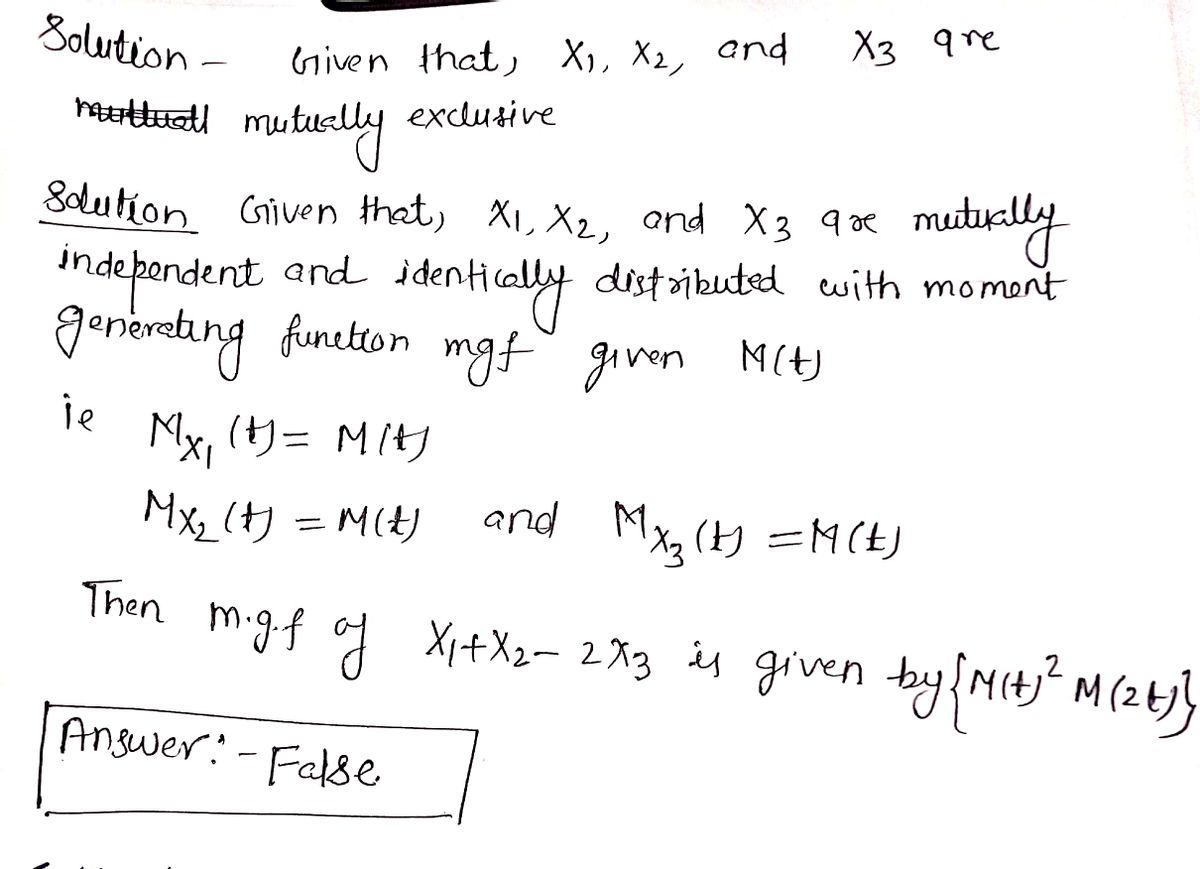 Solution - Given that, X₁, X₂, and X₃ are
mutually exclusive
Solution Given that, X₁, X₂, and X₃ are mutually
independent and identically distributed with moment
generating function mgf given M(t)
ie M_X₁(t) = M(t)
M_X₂(t) = M(t) and M_X₃(t) = M(t)
Then m.g.f of X₁+X₂- 2X₃ is given by {M(t)² M(2t)}
Answer:- False